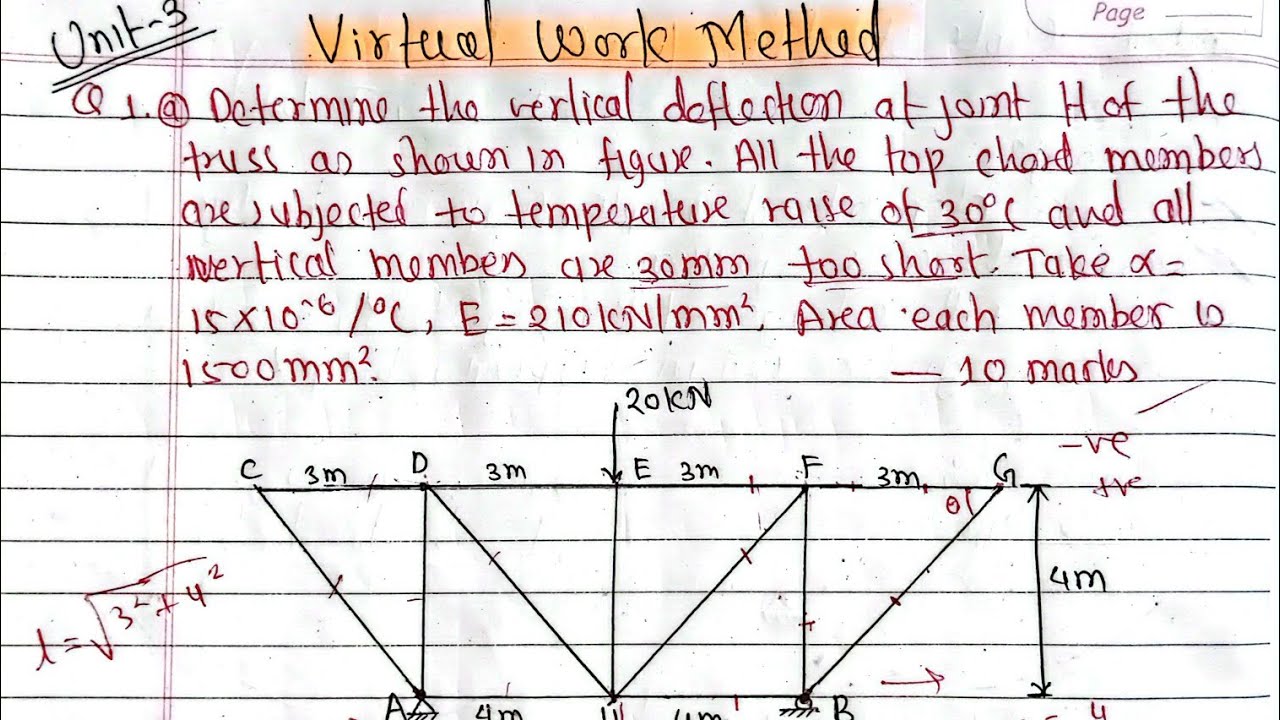 Unit-3
Virtual Work Method
Page
Q 1. a Determine the vertical deflection at joint H of the
truss as shown in figure. All the top chord members
are subjected to temperature raise of 30°C and all
vertical members are 30mm too short. Take α =
15×10⁻⁶/°C, E = 210kN/mm². Area each member is
1500mm².
— 10 marks
20kN
-ve
C 3m D 3m E 3m F 3m G
+ve
θ
4m
l = √3²+4²
A 4m H 4m B
= 4